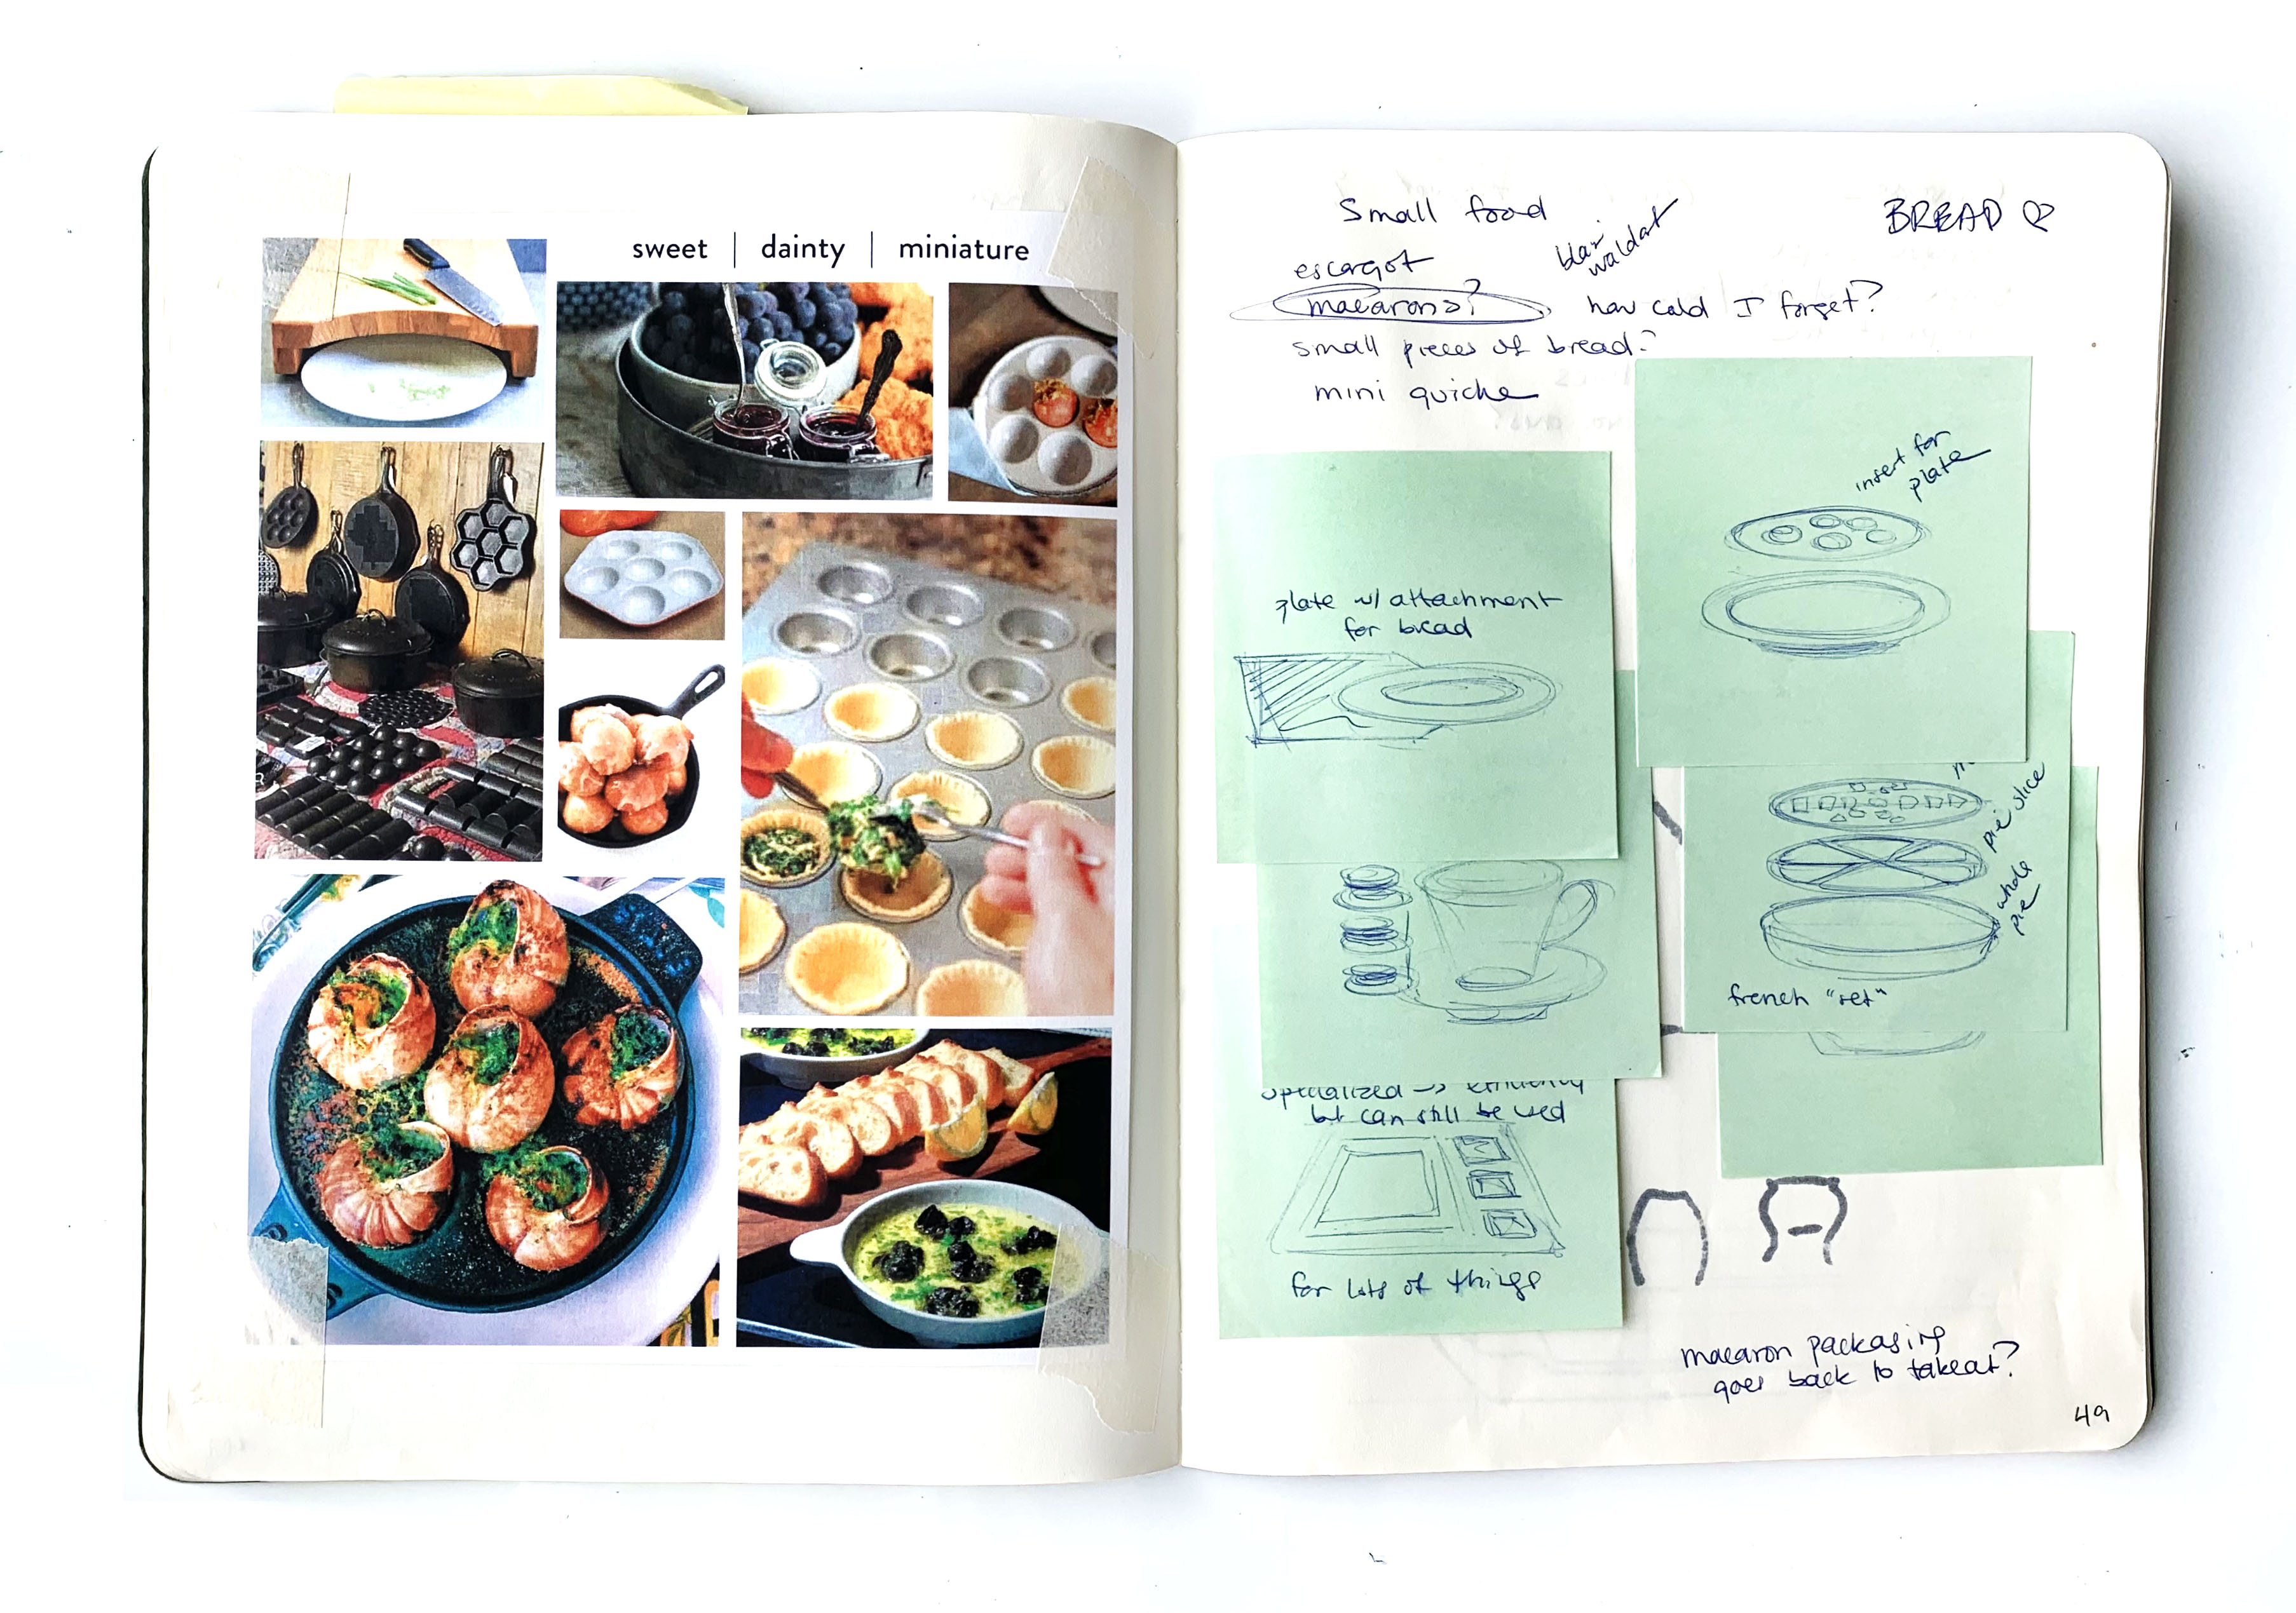 sweet | dainty | miniature
Small food
BREAD
escargot
macarons?
how cold I forget?
small pieces of bread?
mini quiche
insert for
plate
plate w/ attachment
for bread
pie slice
whole
pie
french "set"
but can still be used
for lots of things
macaron packaging
goes back to takeout?
49